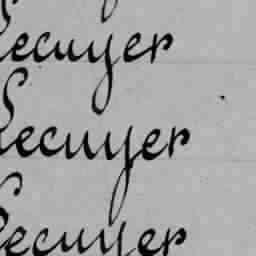 Lecuyer
Lecuyer
Lecuyer